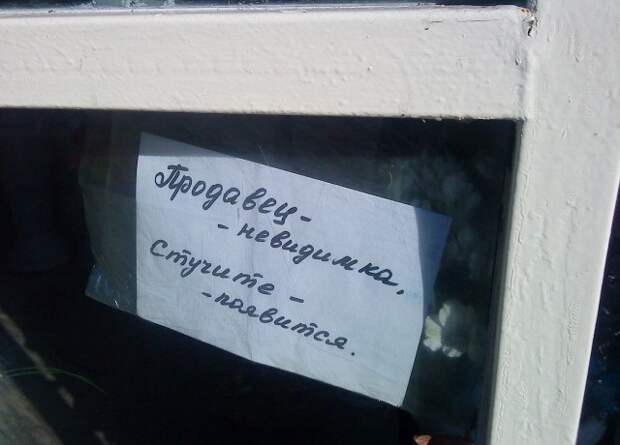 Продавец-
- невидимка,
Стучите -
- появится.